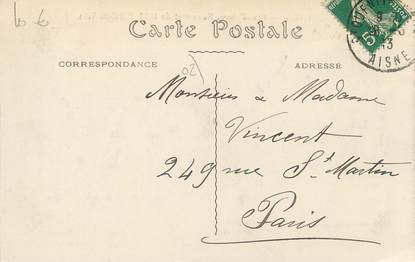 Carte Postale
CORRESPONDANCE
ADRESSE
02
Monsieur & Madame
Vincent
249 rue St Martin
Paris
5
13
AISNE